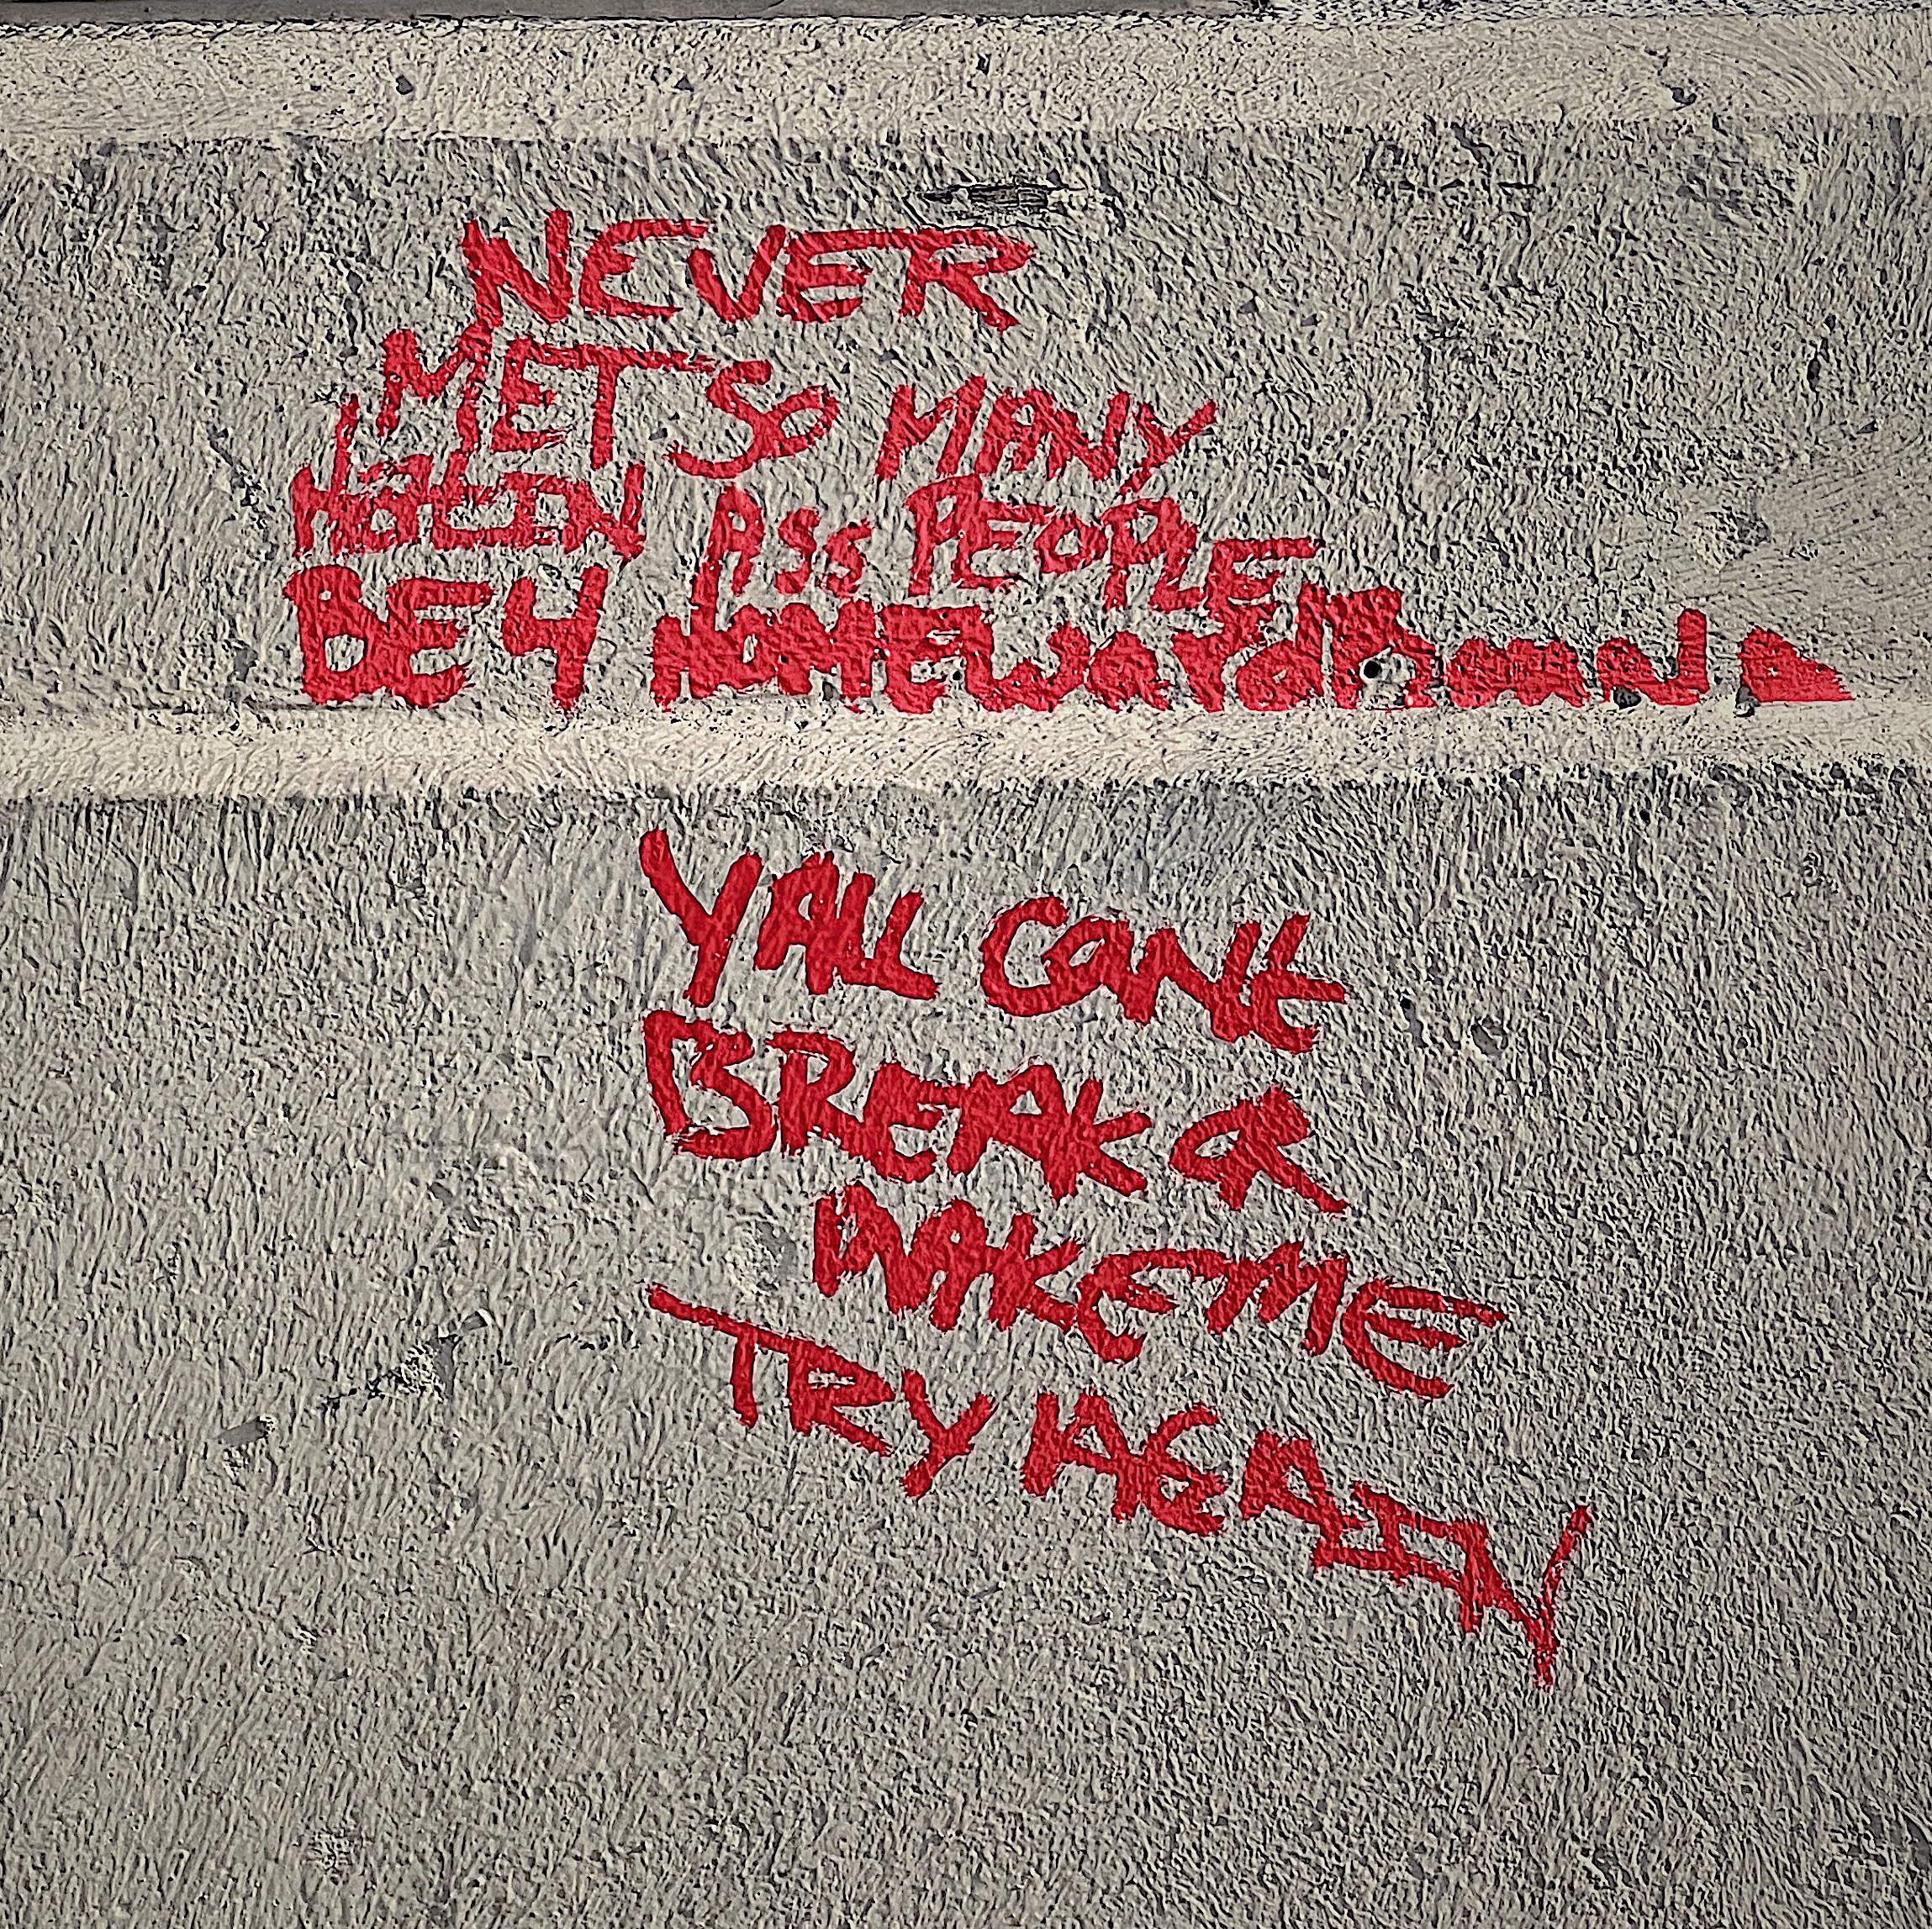 NEVER
MET SO MANY
ASS PEOPLE
BE4 HOMEWARD
YALL CANt
BREAK A
MAKE ME
TRY AGAIN